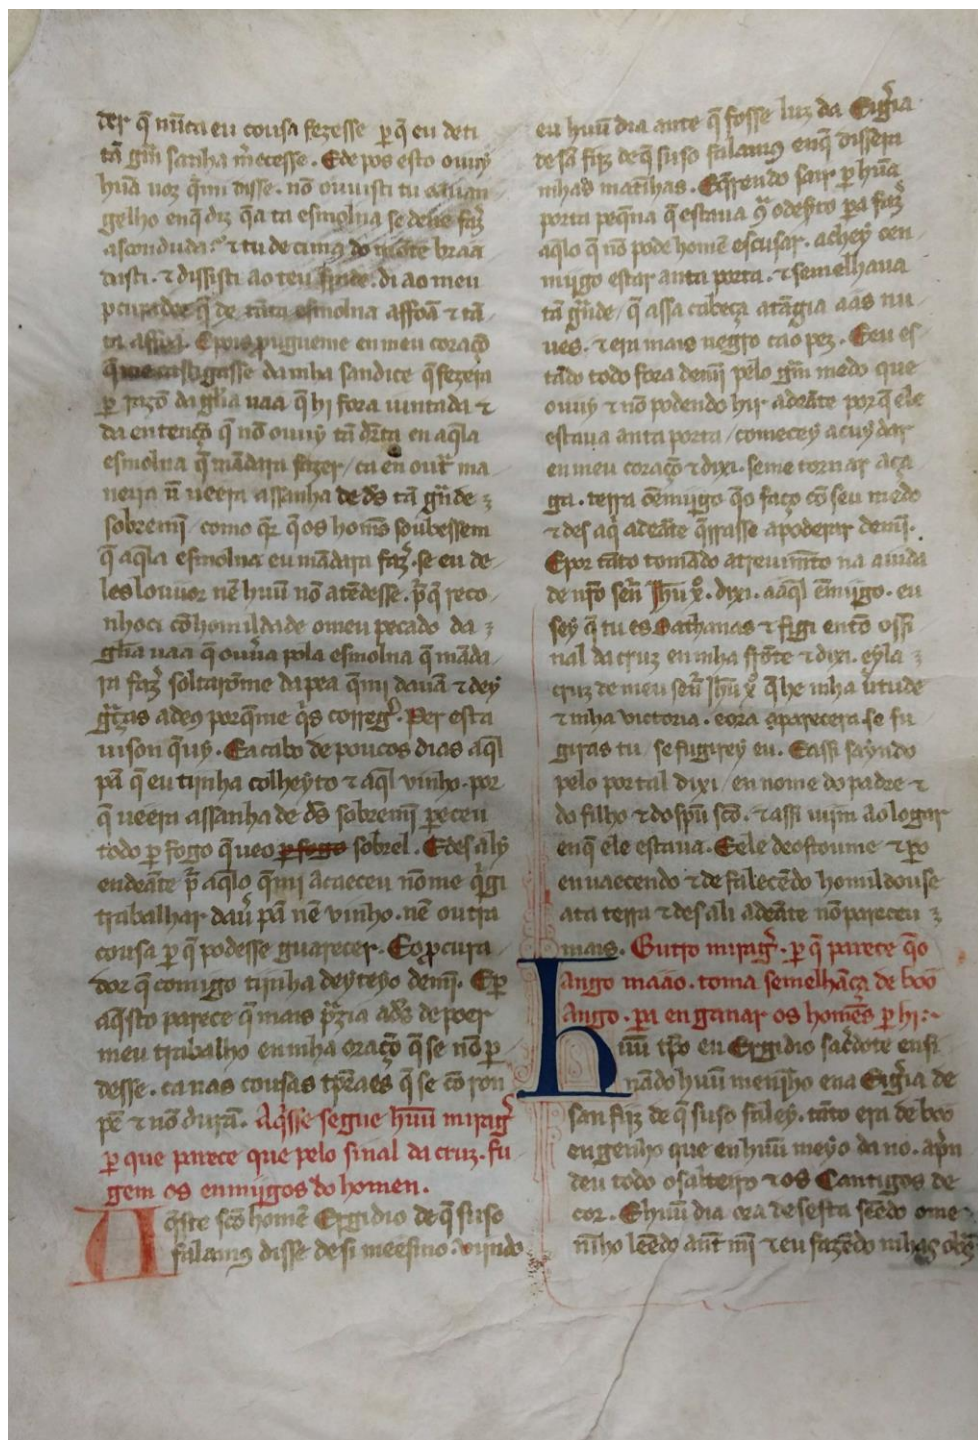 der q̄ nūca eu cousa fezesse per q̄ eu de ti
tā grā sanha mērecesse. E de pos esto ouuy
hūa uoz q̄ mi disse. nō ouuisti tu o auan
gelho en q̄ diz q̄ a ta esmolna se deue faz̄
asconduda. ⁊ tu de cima do monte braa
dasti. ⁊ dissisti ao teu di ao meu
pcurador q̄ de tāta esmolna a ffoā ⁊ tā
ta a ffoā. E pois prougueme en meu coraçō
q̄ me castigasse da mha sandice q̄ fezera
per razō da gl̄ia uaa q̄ hi fora uintada ⁊
da entençō q̄ nō ouuy tā dr̄ta en aq̄la
esmolna q̄ mādara fazer / ca en outr̄ ma
neira nō ueera a ssanha de ds̄ tā grāde
sobre mī. como qr̄ q̄ os homēs soubessem
q̄ aq̄la esmolna eu mādara faz̄. se eu de
les louuor nē hūu nō atēdesse. pr̄ q̄ reco
nhoci cō homildade o meu pecado da
gl̄ia uaa q̄ ouūa pola esmolna q̄ māda
ra faz̄ soltarōme da pea q̄ mi dauā ⁊ dey
gr̄ças a deus porq̄ me q̄s correger̄. Per esta
uison q̄ uy. E a cabo de poucos dias aq̄l
pā q̄ eu tijnha colheyto ⁊ aq̄l vinho. por
q̄ ueera a ssanha de ds̄ sobre mī pereceu
todo per fogo q̄ ueo per fogo sobrel. E des aly
endeāte pr̄ aq̄lo q̄ mi acaeceu nō me q̄gi
trabalhar daū pā nē vinho. nē outra
cousa per q̄ podesse guarecer. E o procura
dor q̄ comigo tijnha deyteyo de mī. E per
aq̄sto parece q̄ mais pr̄zia a ds̄ de poer
meu trabalho en mha oraçō q̄ se nō per
desse. ca nas cousas tp̄raes q̄ se cōron
pē ⁊ nō durā. Aq̄ sse segue hūu miragr̄
per que parece que pelo sinal da cruz. fu
gem os enmijgos do homen.
Aq̄ste scō homē Ergidio de q̄ suso
falamus disse de si meesmo. vijndo
eu hūu dia ante q̄ fosse luz da Eigr̄ia
de sā fijz de q̄ suso falamus en q̄ dissera
mhas matīhas. E q̄rendo sair per hūa
porta peq̄na q̄ estaua gr̄ o deyto pera faz̄
aq̄lo q̄ nō pode homē escusar. achey o en
mijgo estar anta porta. ⁊ semelhaua
tā grāde / q̄ a ssa cabeça atāgia aas nu
ues. ⁊ era mais negro cao pez. E eu es
tādo todo fora de mī pelo grā medo que
ouuy ⁊ nō podendo hir adeāte porq̄ ele
estaua anta porta / comecey a cuydar
en meu coraçō ⁊ dixi. se me tornar a ça
ga. terra o ēmijgo q̄ o faço cō seu medo
⁊ des aq̄ adeāte q̄rrasse apoderar de mī.
E por tāto tomādo atreuimēto na aiuda
de nr̄o sen̄r Jh̄u xp̄o. dixi. a aq̄l ēmijgo. eu
sey q̄ tu es Sathanas ⁊ figi entō o ssi
nal da cruz en mha frōte ⁊ dixi. ey la
cruz de meu sen̄r Jh̄u xp̄o q̄ he mha ūtude
⁊ mha victoria. e ora aparecera. se fu
giras tu / se fugirey eu. E assi sayndo
pelo portal dixi / en nome do padre ⁊
do filho ⁊ do sp̄u scō. ⁊ assi uijm ao logar
en q̄ ele estaua. E ele deostoume ⁊ pero
enuaecendo ⁊ de falecēdo homildouse
ata terra ⁊ des ali adeāte nō pareceu
mais. Outro miragr̄. per q̄ parece q̄ o
Āngo maao. toma semelhāça de boō
Āngo. pera enganar os homēs per hi:-
hūu tp̄o eu Ergidio sac̄dote ensi
nādo hūu meninho ena Eigr̄ia de
san fijz de q̄ suso faley. tāto era de boō
engenho que en hūu meyo dano. ap̄n
deu todo o salteiro ⁊ os Cantigos de
cor. E hūu dia ora de sesta seēdo o me
nīho leēdo ant̄ mī ⁊ eu fazēdo mhas obras̄